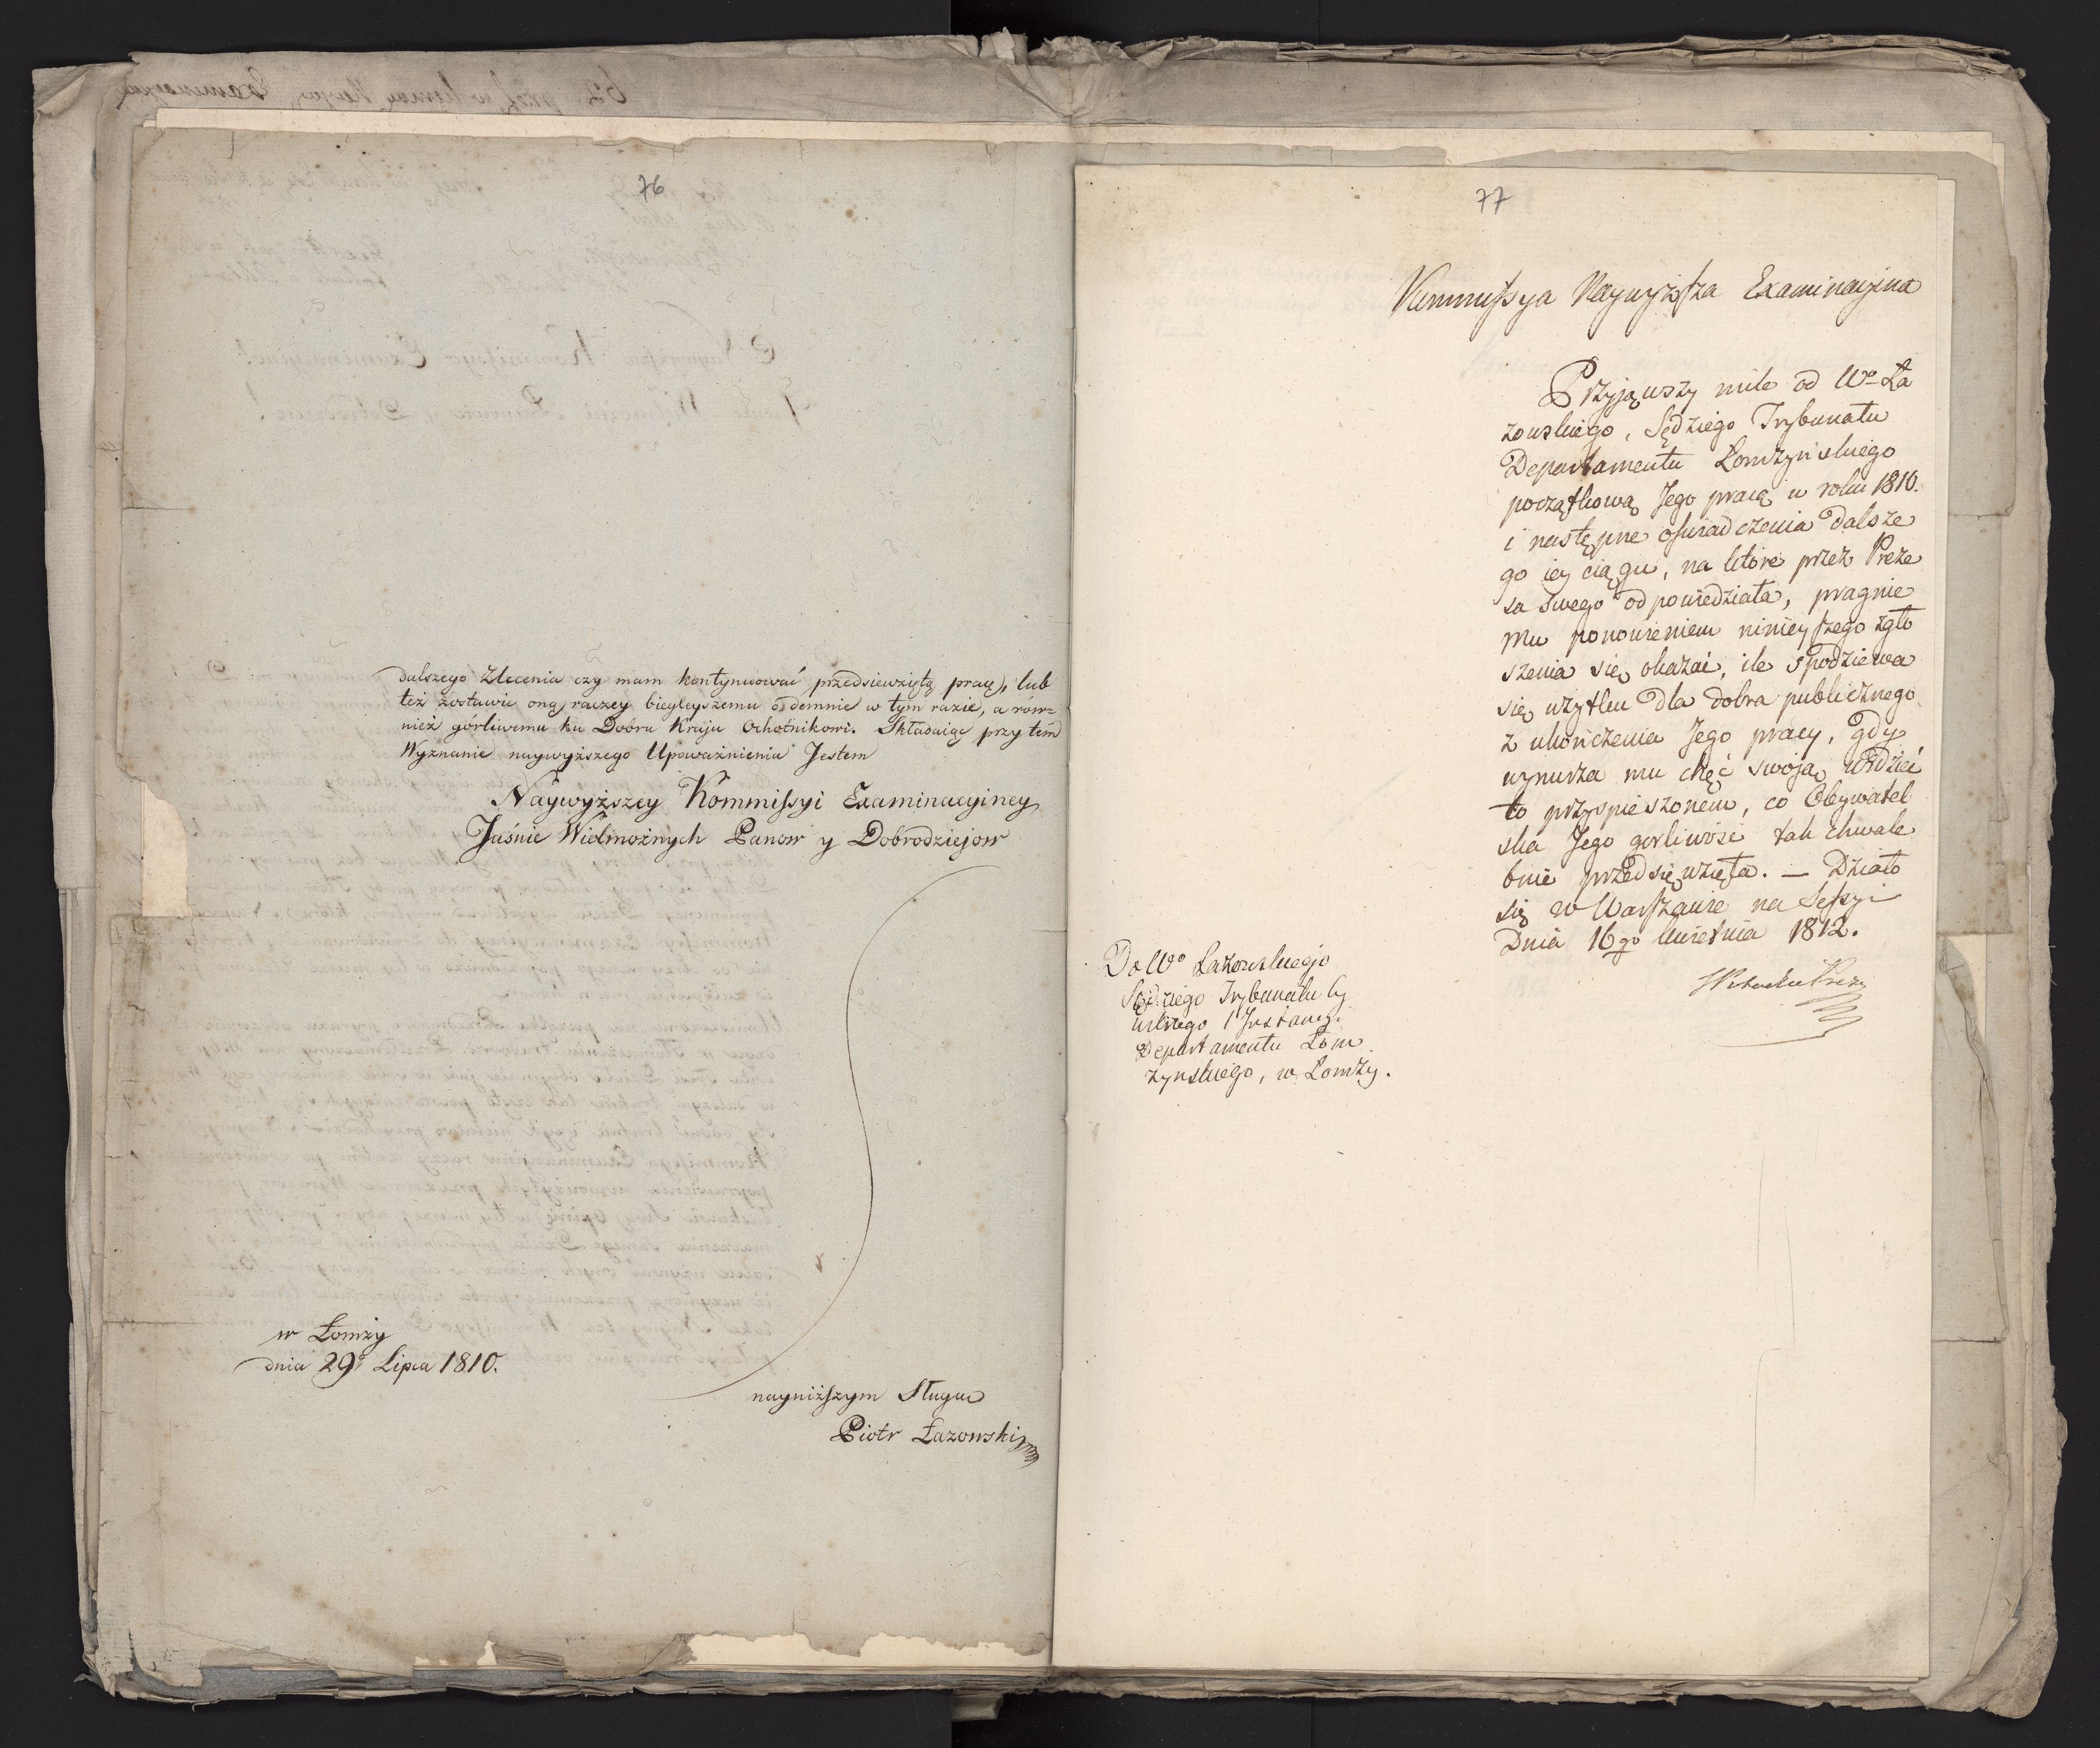 76
dalszego Zlecenia czy mam kontynuować przedsiewziętą pracę, lub
też zostawić oną raczey biegleyszemu odemnie w tym razie, a rów=
nież górliwemu ku Dobru Kraju Ochotnikowi. Składaiąc przy tém
Wyznanie naywyższego Upoważnienia Jestem
Naywyższey Kommissyi Examinacyiney
Jaśnie Wielmożnych Panow y Dobrodziejow
w Łomży
dnia 29º Lipca 1810.
nayniższym Sługa
Piotr Łazowski
77
Kommissya Naywyższa Examinacyina
Przyjąwszy mile od Wº Ła
zowskiego, Sędziego Trybunału
Departamentu Łomżyńskiego
początkową Jego pracę w roku 1810.
i następne oświadczenia dalsze
go iey ciągu, na które przez Preze
sa swego odpowiedziała, pragnie
mu ponowieniem ninieyszego zgło
szenia się okazać, ile spodziewa
się użytku dla dobra publicznego
z ukończenia Jego pracy, gdy
wynurza mu chęć swoją widzieć
to przyspieszonem, co Obywatel
ska Jego gorliwość tak chwale
bnie przedsięwzięła. — Działo
się w Warszawie na Sessyi
Dnia 16go Kwietnia 1812.
Do Wº Łazowskiego
Sędziego Trybunału Cy
wilnego 1 Instancyi
Departamentu Łom
żyńskiego, w Łomży.